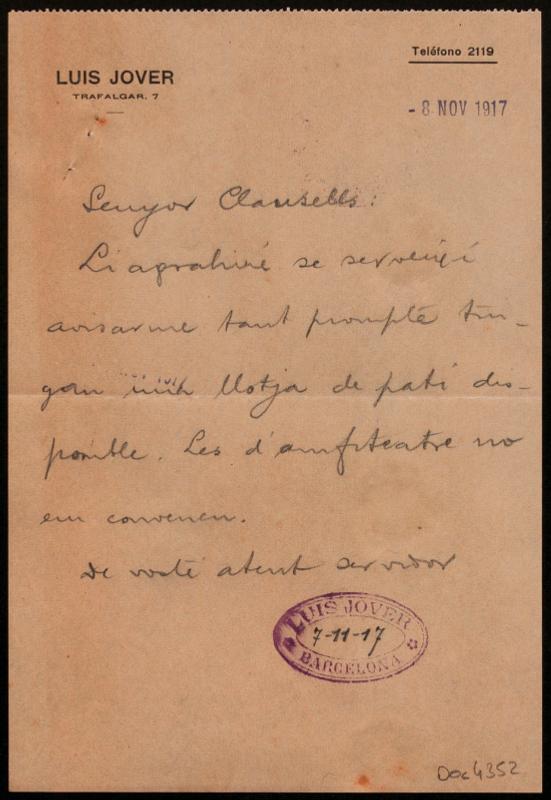 LUIS JOVER
TRAFALGAR, 7
Teléfono 2119
- 8 NOV 1917
Senyor Clausells:
Li agrahiré se serveixi
avisarme tant prompte tin-
gan una llotja de pati dis-
ponible. Les d'amfiteatre no
em convenen.
De vosté atent servidor
LUIS JOVER
7-11-17
BARCELONA
Doc 4352